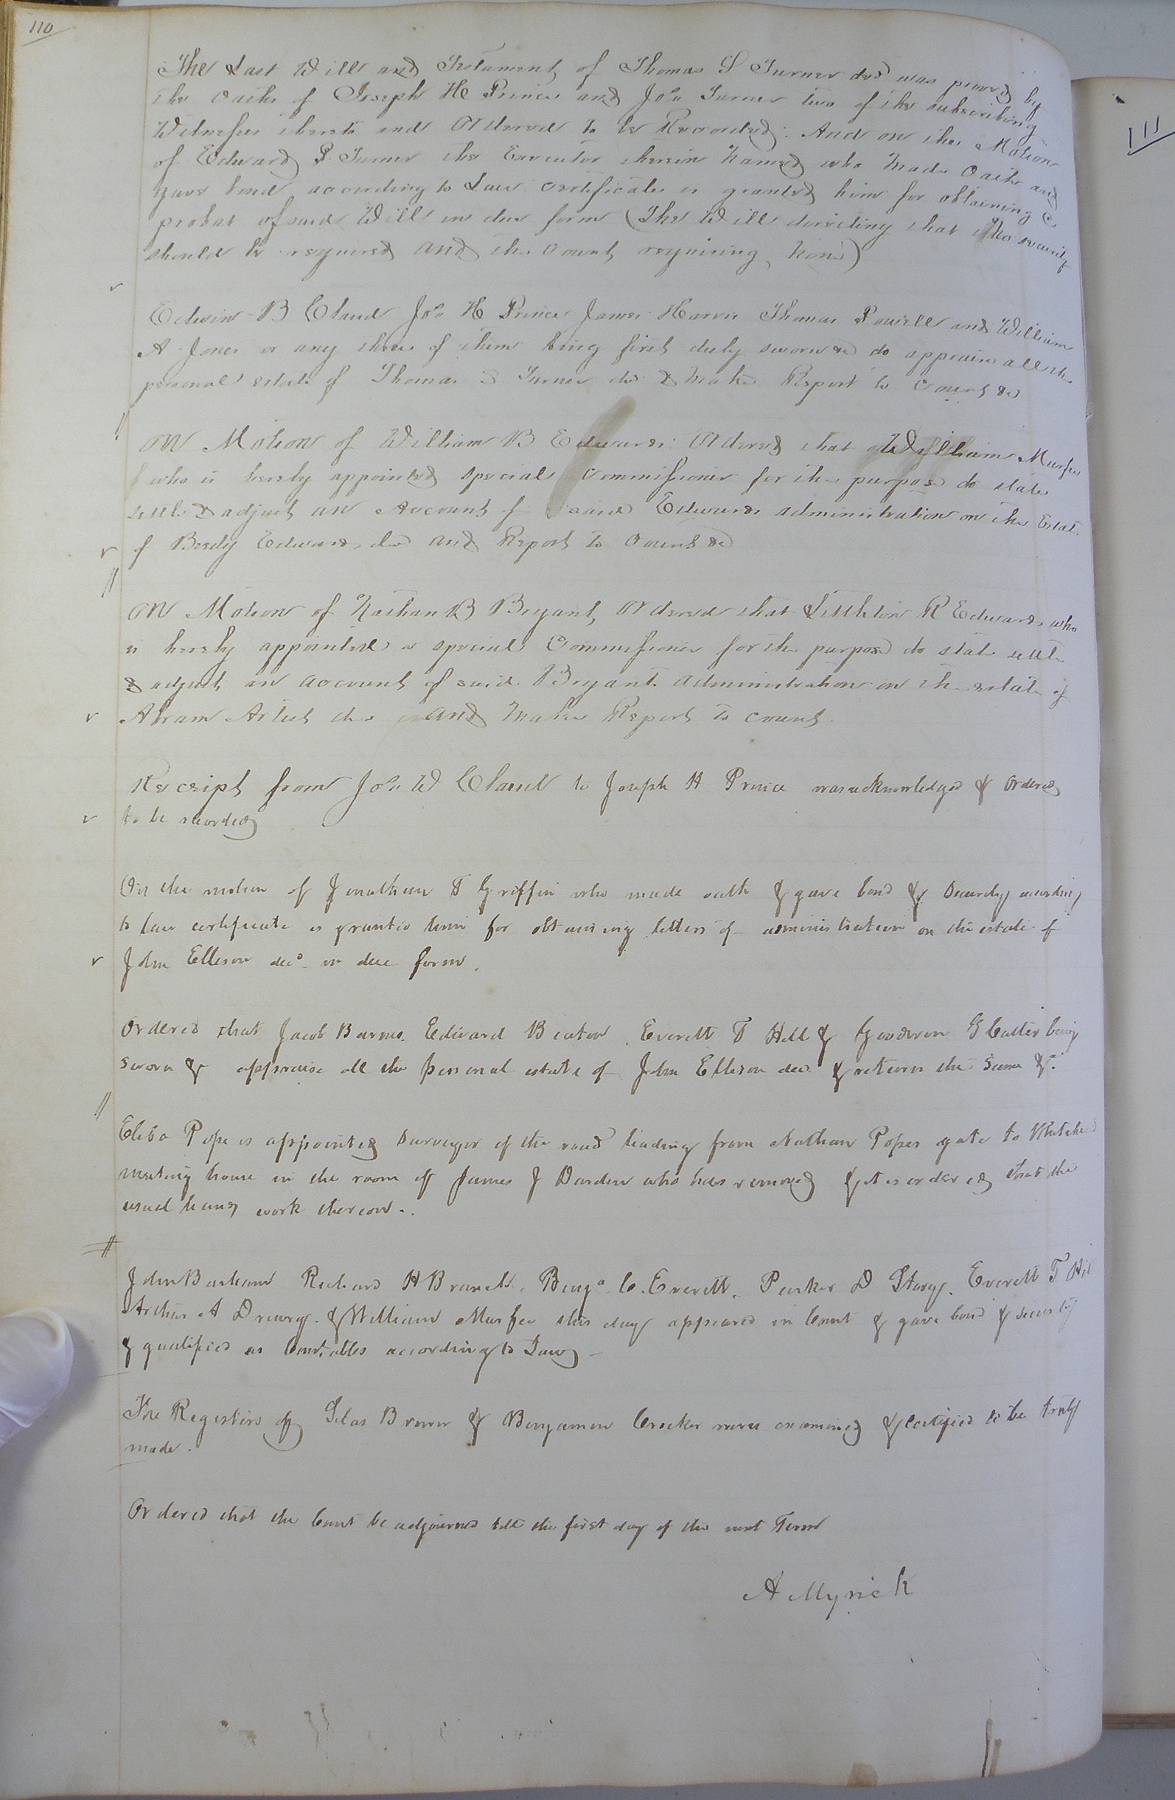 110
The Last Will and Testament of Thomas S Turner decd was proved by
the oaths of Joseph H Prince and Jos Turner two of the subscribing
Witnesses thereto and Ordered to be Recorded. And on the Motion
of Edward P Turner the Executor therein Named who Made Oath and
gave bond according to Law certificate is granted him for obtaining a
probat of said Will in due form (The Will directing that No security
should be required and the Court requiring None)
Edwin B Claud Jos H Prince James Harris Thomas Powell and William
A Jones or any three of them being first duly sworn &c do appraise all the
personal estate of Thomas S Turner decd & Make Report to Court &c
On Motion of William B Edwards Ordered that William Murfee
who is hereby appointed special Commissioner for the purpose do state
settle & adjust an Account of said Edwards administration on the Estate
of Edwards decd and Report to Court &c
On Motion of Nathan B Bryant, Ordered that Littleton R Edwards who
is hereby appointed a special Commissioner for the purpose do state settle
& adjust an account of said Bryants administration on the estate of
Abram Artist decd and Make Report to Court
Receipt from Jos W Claud to Joseph H Prince was acknowledged & Ordered
to be recorded
On the motion of Jonathan T Griffin who made oath & gave bond & Security according
to law certificate is granted him for obtaining letters of administration on the estate of
John Elleson decd in due form.
Ordered that Jacob Barnes, Edward Beaton, Everett T Hill & Goodwin G Cutler being
sworn & appraise all the personal estate of John Elleson decd & return the same &c
Pope is appointed Surveyor of the road leading from Nathan Popes gate to
meeting house in the room of James J Darden who has removed & it is ordered that the
usual hands work thereon.
111
John Barham Richard H Branch, Benja C. Everett, Parker D Story, Everett T Hill
Arthur A Drewry & William Murfee this day appeared in Court & gave bond & security
& qualified as Constables according to Law
The Registers of Silas Brown & Benjamin Crocker were examined & certified to be truly
made.
Ordered that the Court be adjourned till the first day of the next Term
A Myrick